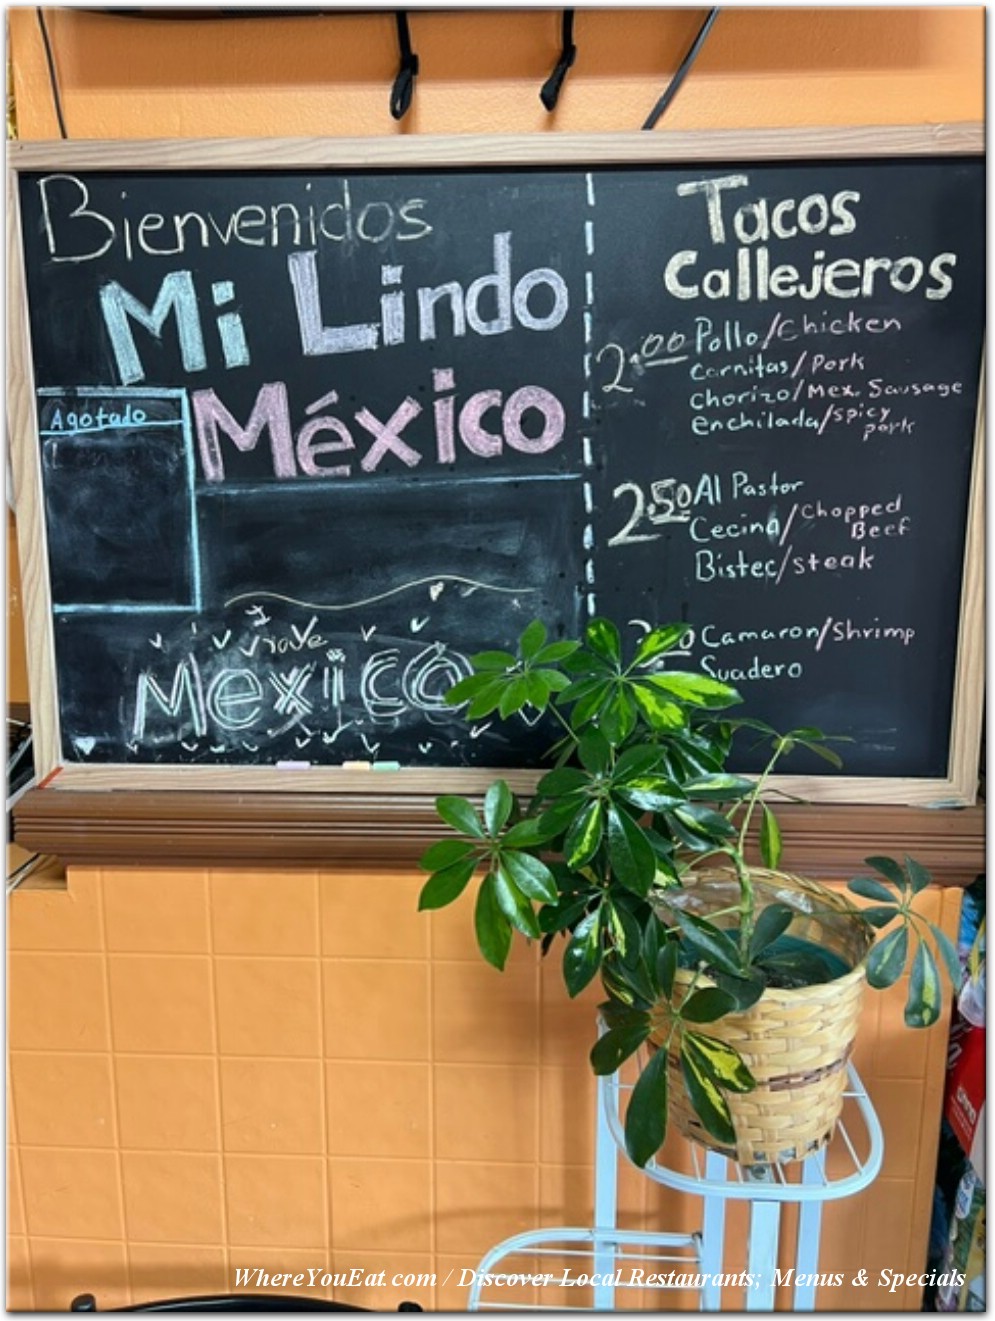 Bienvenidos
Mi Lindo
México
Agotado
México
Tacos
Callejeros
2.00 Pollo/Chicken
Carnitas/Pork
Chorizo/Mex. Sausage
enchilada/spicy
pork
2.50 Al Pastor
Cecina/Chopped
Beef
Bistec/steak
Camaron/Shrimp
Suadero
WhereYouEat.com / Discover Local Restaurants; Menus & Specials